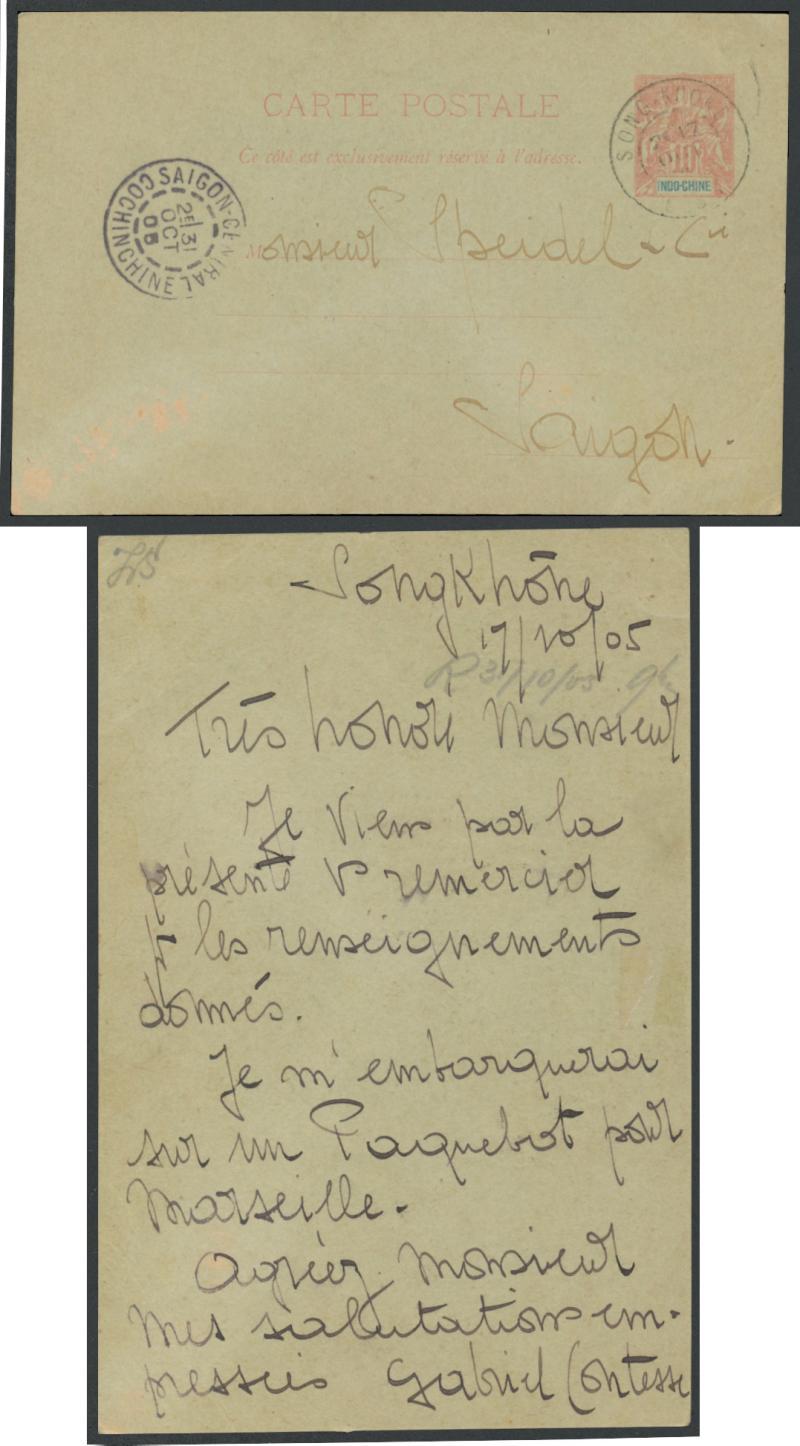 CARTE POSTALE
Ce côté est exclusivement réservé à l'adresse.
SONG-KHONE
17
10
INDO-CHINE
SAIGON-CENTRAL
COCHINCHINE
2E 31
OCT
05
Monsieur Speidel & Cie
Saigon.
SongKhône
17/10/05
R 31/10/05
Très honoré Monsieur
Je viens par la
présente vs remercier
pr les renseignements
donnés.
Je m'embarquerai
sur un Paquebot pour
Marseille.
Agréez Monsieur
mes salutations em-
pressées Gabriel Contesse